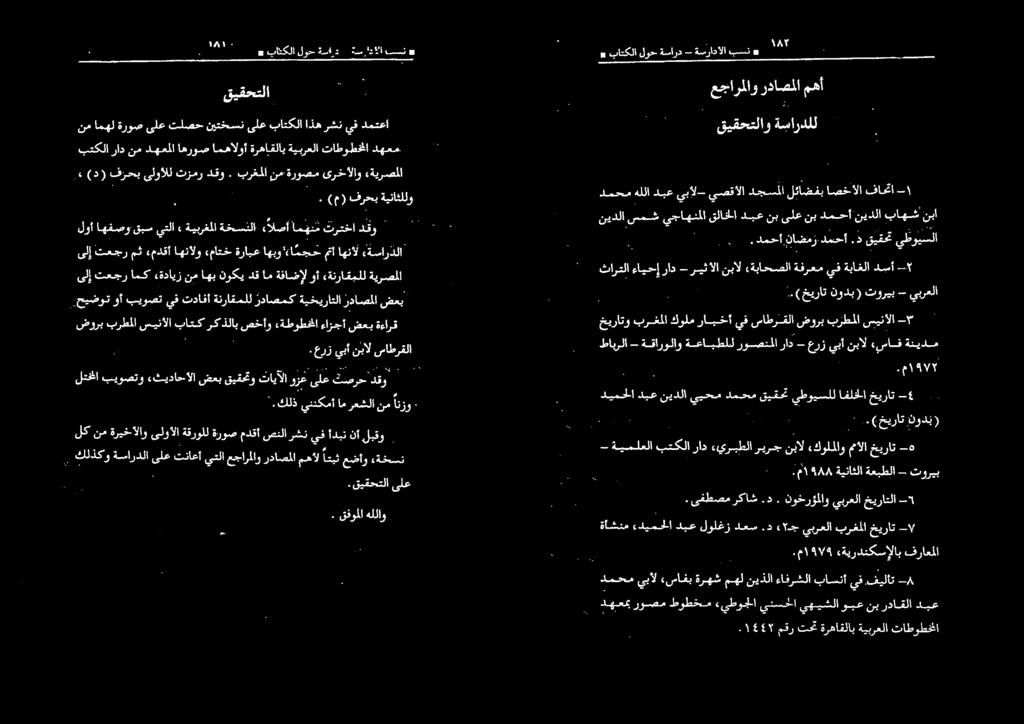 ■ نسب الادارسة – دراسة حول الكتاب ■ ١٨١
التحقيق
اعتمد في نشر هذا الكتاب على نسختين حصلت على صورة لهما من
معهد المخطوطات العربية بالقاهرة أولاهما صورها المعهد من دار الكتب
المصرية، والأخرى مصورة من المغرب . وقد رمزت للأولى بحرف (د) ،
وللثانية بحرف (م) .
وقد اخترت منهما أصلاً، النسخة المغربية ، التي سبق وصفها أول
الدراسة، لأنها أتم حجمًا، وبها عبارة ختام، ولأنها أقدم، ثم رجعت إلى
المصرية للمقارنة، أو لإضافة ما قد يكون بها من زيادة، كما رجعت إلى
بعض المصادر التاريخية كمصادر للمقارنة أفادت في تصويب أو توضيح
قراءة بعض أجزاء المخطوطة، وأخص بالذكر كتاب الأنيس المطرب بروض
القرطاس لابن أبي زرع.
وقد حرصت على عزو الآيات وتحقيق بعض الأحاديث، وتصويب المختل
وزناً من الشعر ما أمكنني ذلك.
وقبل أن نبدأ في نشر النص أقدم صورة للورقة الأولى والأخيرة من كل
نسخة، وأضع ثبتاً لأهم المصادر والمراجع التي أعانت على الدراسة وكذلك
على التحقيق.
والله الموفق .
١٨٢ ■ نسب الادارسة – دراسة حول الكتاب ■
أهم المصادر والمراجع
للدراسة والتحقيق
١– اتحاف الأخصا بفضائل المسجد الأقصي –لأبي عبد الله محمد
ابن شهاب الدين أحمد بن على بن عبد الخالق المنهاجي شمس الدين
السيوطي تحقيق د. أحمد رمضان أحمد .
٢– أسد الغابة في معرفة الصحابة، لابن الأثير – دار إحياء التراث
العربي – بيروت (بدون تاريخ).
٣– الأنيس المطرب بروض القرطاس في أخبار ملوك المغرب وتاريخ
مدينة فاس، لابن أبي زرع – دار المنصور للطباعة والوراقة – الرباط
١٩٧٢م.
٤– تاريخ الخلفا للسيوطي تحقيق محمد محيي الدين عبد الحميد
(بدون تاريخ).
٥– تاريخ الأمم والملوك، لابن جرير الطبري، دار الكتب العلمية –
بيروت – الطبعة الثانية ١٩٨٨م.
٦– التاريخ العربي والمؤرخون . د. شاكر مصطفى.
٧– تاريخ المغرب العربي جـ٢، د. سعد زغلول عبد الحميد، منشأة
المعارف بالإسكندرية، ١٩٧٩م.
٨– تاليف في أنساب الشرفاء الذين لهم شهرة بفاس، لأبي محمد
عبد القادر بن عبو الشبيهي الحسني الجوطي، مخطوط مصور بمعهد
المخطوطات العربية بالقاهرة تحت رقم ١٤٤٢.